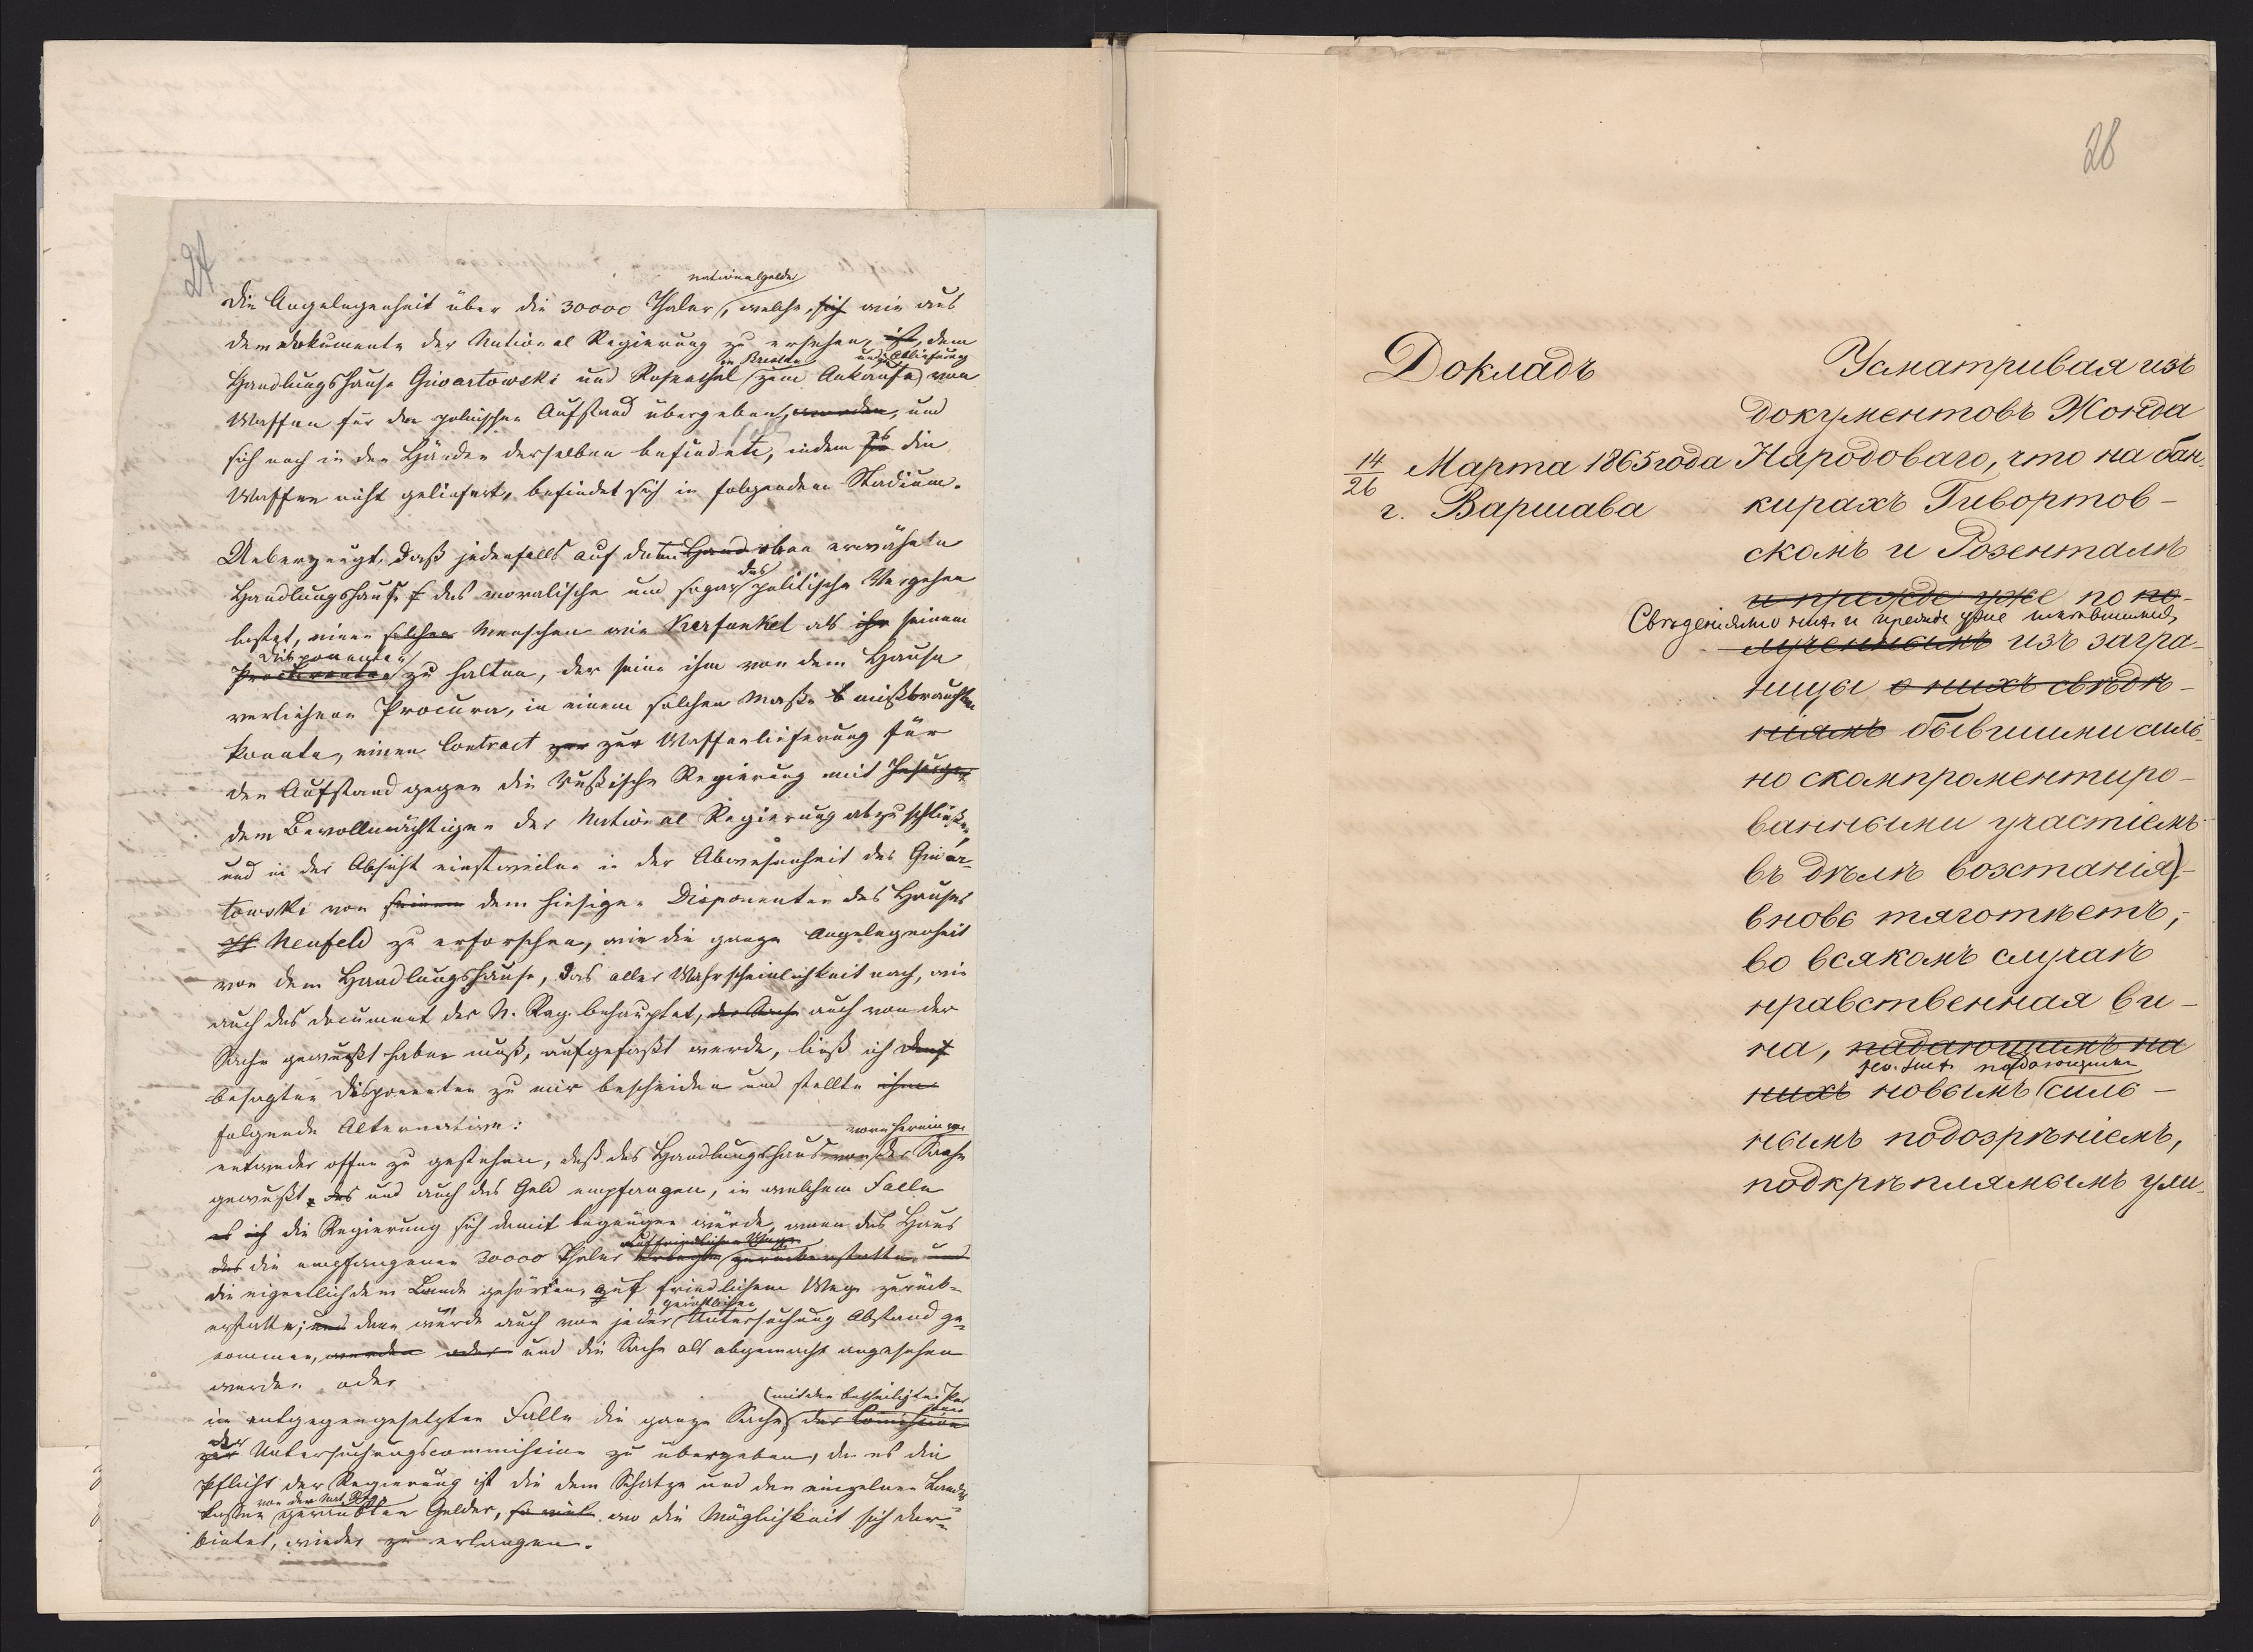 24
nationalgelder
Die Angelegenheit über die 30000 Thaler, welche, sich wie aus
dem Dokumente der National Regierung zu ersehen, ist, dem
in Breslau und Ablieferung
Handlungshause Giwartowski und Rosenthal zum Ankaufe von
Waffen für den polnischen Aufstand übergeben, worden, und
sich noch in den Händen derselben befindet, indem sie die
Waffen nicht geliefert, befindet sich in folgendem Stadium.
Ueberzeugt, daß jedenfalls auf dem Hand oben erwähnten
das
Handlungshause das moralische und sogar politische Vergehen
lastet, einen solchen Menschen wie Karfunkel als ihr seinem
Disponenten
Procurenten zu halten, der seine ihm von dem Hause
verliehene Procura, in einem solchen Maße mißbrauchen
konnte, einen Contract zur zur Waffenlieferung für
den Aufstand gegen die Rußische Regierung mit
dem Bevollmächtigten der National Regierung abzuschließen,
und in der Absicht einstweilen in der Abwesenheit des Giwar-
towski von seinem dem hiesigen Disponenten des Hauses
Neufeld zu erforschen, wie die ganze Angelegenheit
von dem Handlungshause, das aller Wahrscheinlichkeit nach, wie
auch das Document der N. Reg. behauptet, der Sache auch von der
Sache gewußt haben muß, aufgefaßt werde, ließ ich
besagten Disponenten zu mir bescheiden und stellte ihm
folgende Alternative:
entweder offen zu gestehen, daß das Handlungshaus von der Sache
gewußt, das und auch das Geld empfangen, in welchem Falle
es ich die Regierung sich damit begnügen würde, wenn das Haus
auf friedlichem Wege
das die empfangenen 30000 Thaler zurückerstatte und
die eigentlich dem Lande gehörten, auf friedlichem Wege zurück-
gerichtlichen
erstatte; und dann würde auch von jeder Untersuchung Abstand ge-
nommen, werden oder und die Sache als abgemacht angesehen
werden oder
(mit den betheiligten Per
im entgegengesetzten Falle die ganze Sache der Commission
der
zur Untersuchungscommission zu übergeben, da es die
Pflicht der Regierung ist die dem Schatze und den einzelnen Landes-
von der Nat. Reg.
kassen geraubten Gelder, so viel wo die Möglichkeit sich dar-
bietet, wieder zu erlangen.
28
Докладъ
14/26 Марта 1865 года
г. Варшава
Усматривая изъ
документовъ Жонда
Народоваго, что на бан-
кирахъ Гивортов-
скомъ и Розенталѣ
и прежде уже по по-
Свѣденіямъ и прежде уже
лученнымъ изъ загра-
ницы о нихъ свѣдѣ-
ніямъ бывшими силь-
но скомпрометиро-
ванными участіемъ
въ дѣлѣ возстанія)-
вновь тяготѣетъ,
во всякомъ случаѣ
нравственная ви-
на, падающимъ на
падающимъ
нихъ новымъ силь-
нымъ подозрѣніемъ,
подкрѣплямымъ ули-